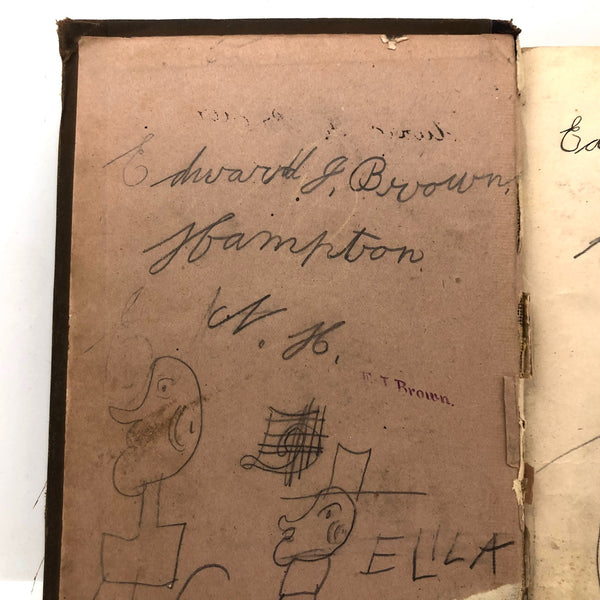 Edward J. Brown,
Hampton
N. H.
E. J. Brown.
ELILA